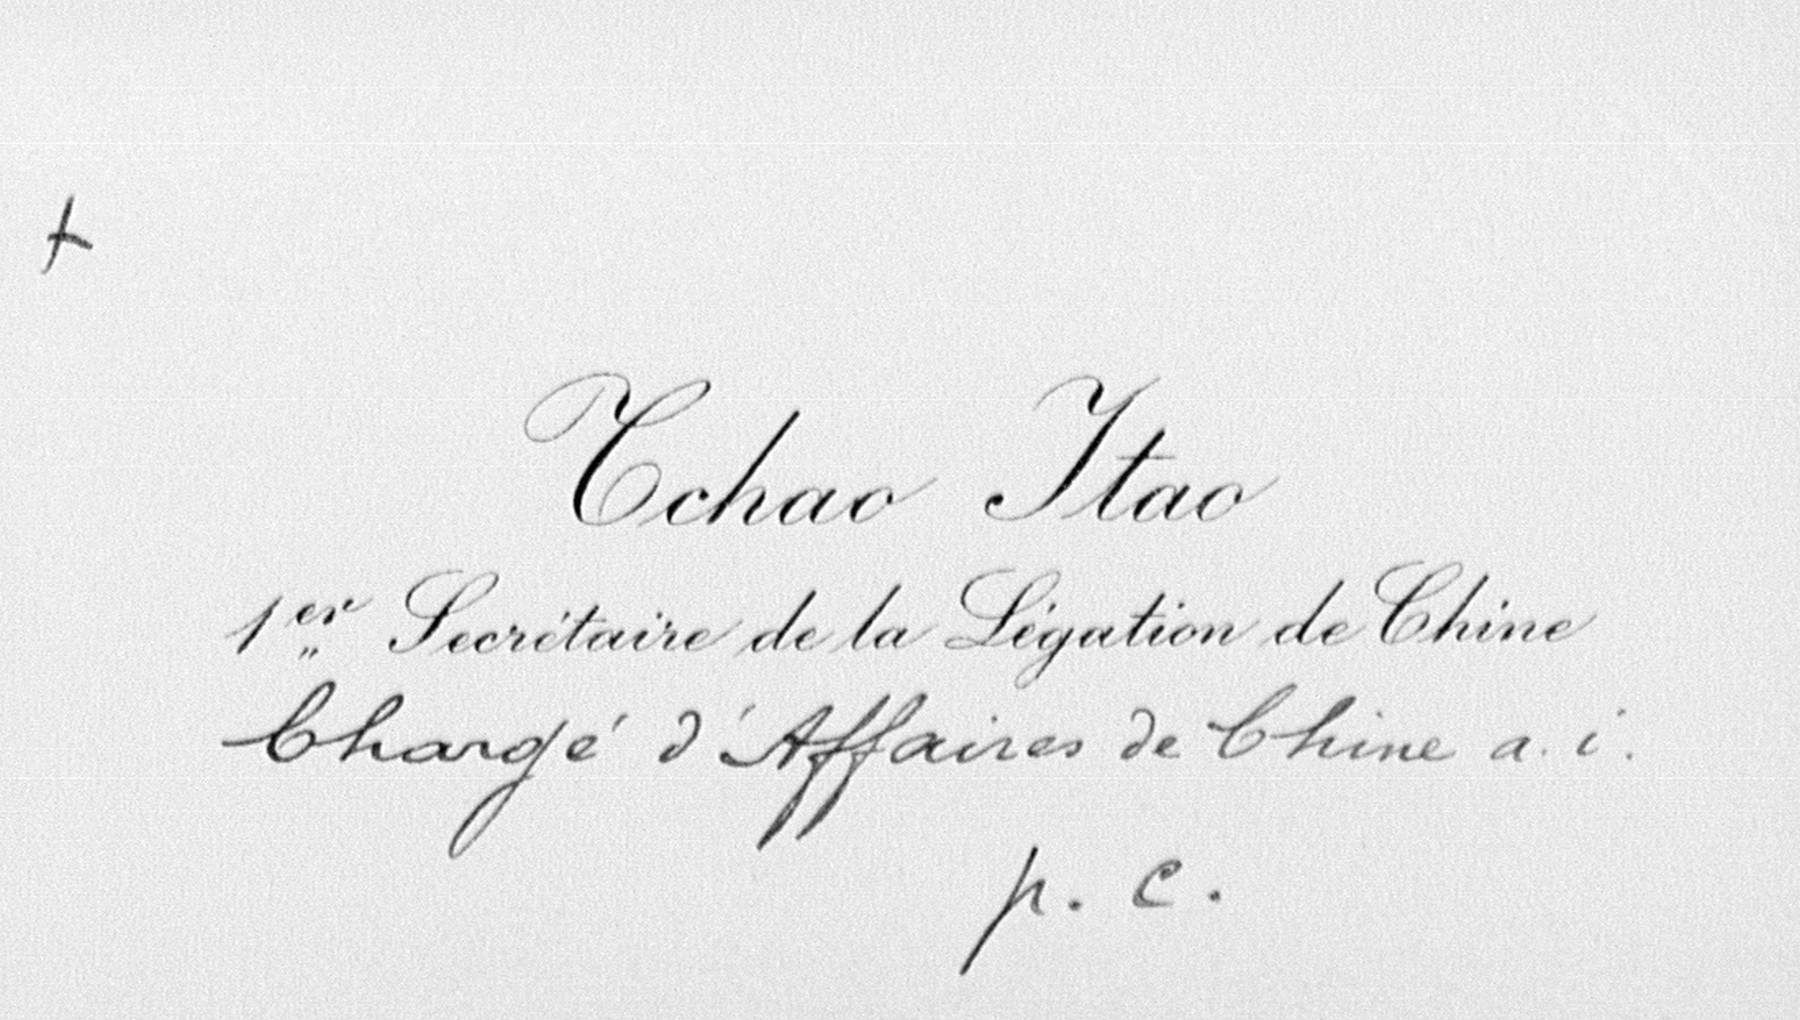 +
Tchao Itao
1er Secrétaire de la Légation de Chine
Chargé d'Affaires de Chine a. i.
p. c.